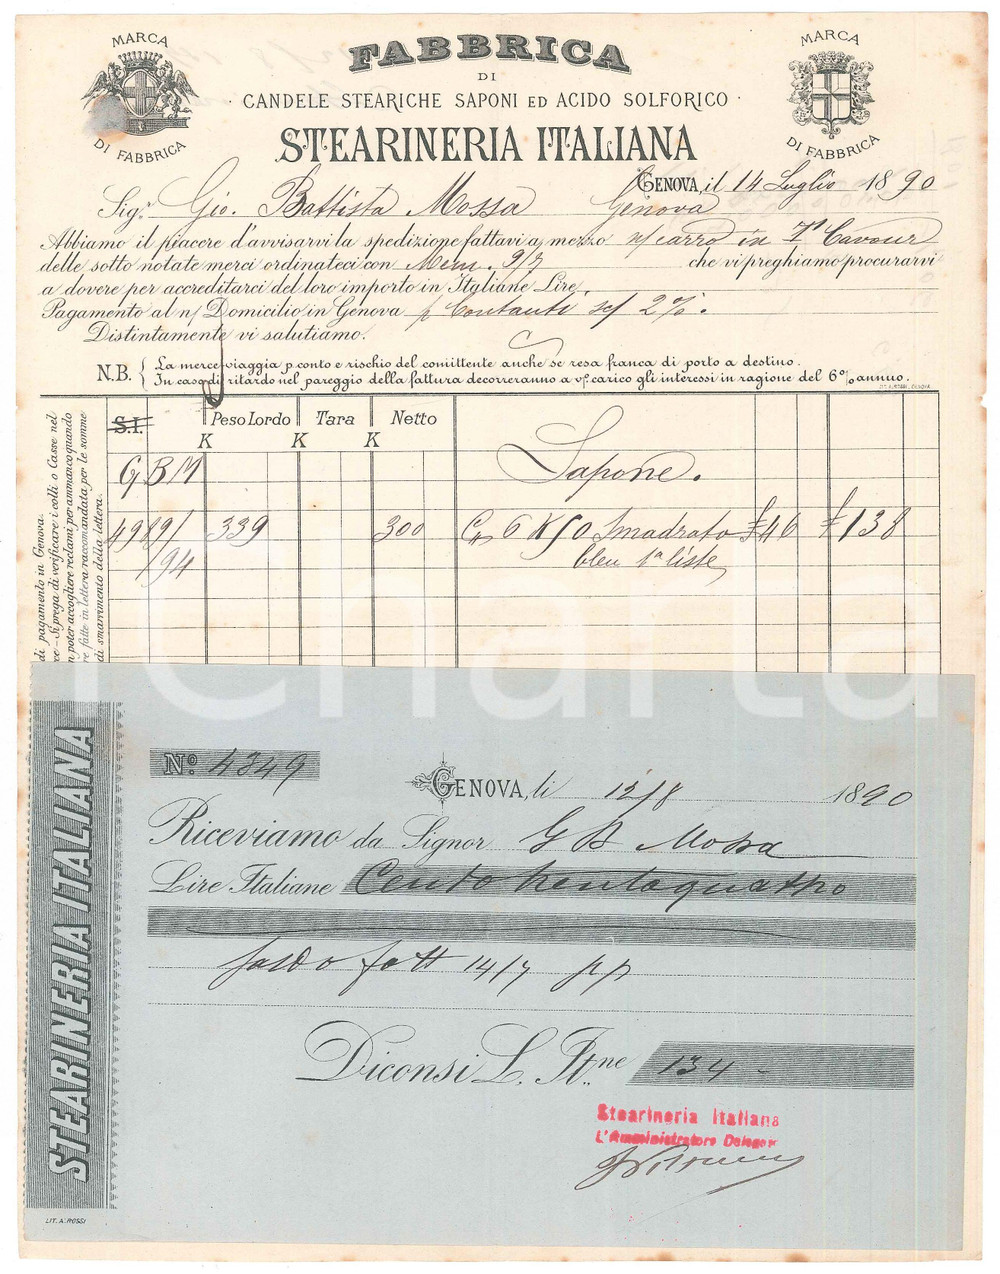 MARCA
DI FABBRICA
FABBRICA
DI
CANDELE STEARICHE SAPONI ED ACIDO SOLFORICO
STEARINERIA ITALIANA
MARCA
DI FABBRICA
GENOVA, il 14 Luglio 1890
Sigr. Gio. Battista Mossa Genova
Abbiamo il piacere d'avvisarvi la spedizione fattavi a mezzo n/ carro in Cavour
delle sotto notate merci ordinateci con Mem. 9/7 che vi preghiamo procurarvi
a dovere per accreditarci del loro importo in Italiane Lire.
Pagamento al n/ Domicilio in Genova p Contanti s/ 2%.
Distintamente vi salutiamo.
N.B. La merce viaggia p. conto e rischio del comittente anche se resa franca di porto a destino.
In caso di ritardo nel pareggio della fattura decorreranno a vo. carico gli interessi in ragione del 6% annuo.
LIT. A. ROSSI, GENOVA
S.I. Peso Lordo Tara Netto
K K K
G B M Sapone.
4989/ 339 300 Cs 6 K 50 Smadrato £ 46 £ 138
/94 bleu 1a liste
di pagamento in Genova.
Si prega di verificare i colli o Casse nel
poter accogliere reclami per ammanco quando
fatte in lettera raccomandata per le somme
di smarrimento della lettera.
iCharta
STEARINERIA ITALIANA
No. 4349
GENOVA, li 12/8 1890
Riceviamo da Signor G B Mossa
Lire Italiane Cento trentaquattro
saldo fatt 14/7 pp
Diconsi L. Itne 134 -
Stearineria Italiana
L'Amministratore Delegato
LIT. A. ROSSI